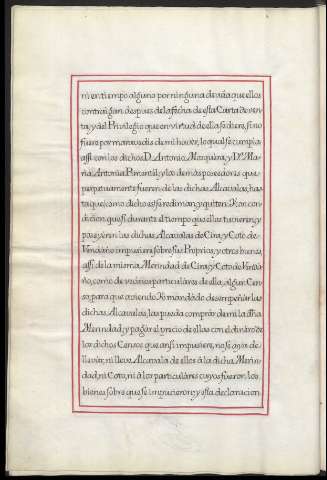 ni en tiempo alguno por ninguna deuda que ellos
contraigan despues de la fecha de esta Carta de ven
ta, y del Privilegio que en virtud de ella se diere, sino
fuere por maravedis de mi hauer, lo qual se cumpla
assi con los dichos D. Antonio Mosquera, y Dª Ma
ria Antonia Pimentel, y los demas posedores que
perpetuamente fueren de las dichas Alcavalas, has
ta que como dicho es se rediman y quiten: Y con con
dicion que si durante el tiempo que ellos tuvieren, y
poseyeren las dichas Alcavalas de Cira, y Coto de
Vendaño impusieren sobre sus Proprios, y otros bienes,
assi de la misma Merindad de Cira, y Coto de Venda
ño, como de vecinos particulares de ella, algun Cen
so, para que aviendo Yo mandado desempeñar las
dichas Alcavalas, las pueda comprar de mi la dha
Merindad, y pagar el precio de ellas con el dinero de
los dichos Censos que ansi impusiere, no se aya de
llevar, ni lleve Alcavala de ellos à la dicha Merin
dad, ni Coto, ni à los particulares cuyos fueren los
bienes sobre que se impusieren; y esta declaracion